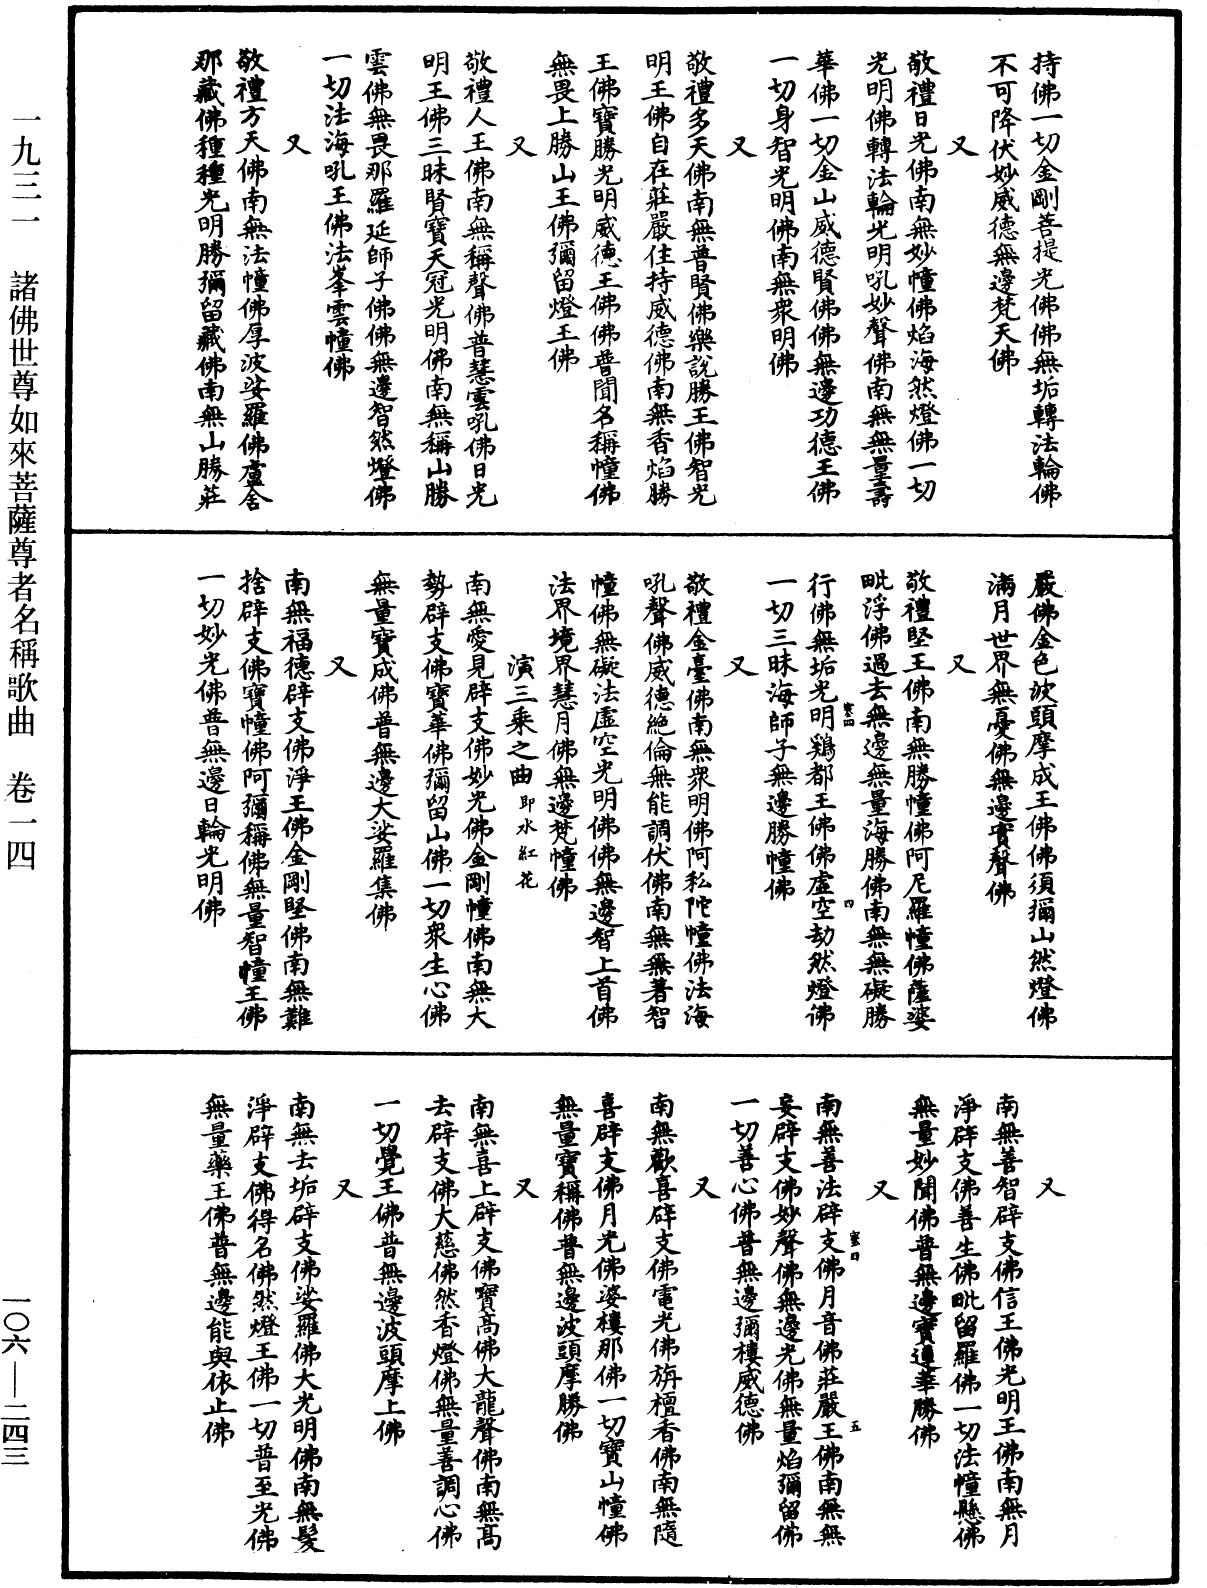 持佛一切金剛菩提光佛佛無垢轉法輪佛
不可降伏妙威德無邊梵天佛
又
敬禮日光佛南無妙幢佛焰海然燈佛一切
光明佛轉法輪光明吼妙聲佛南無無量壽
華佛一切金山威德賢佛佛無邊功德王佛
一切身智光明佛南無衆明佛
又
敬禮多天佛南無普賢佛樂說勝王佛智光
明王佛自在莊嚴住持威德佛南無香焰勝
王佛寶勝光明威德王佛佛普聞名稱幢佛
無畏上勝山王佛彌留燈王佛
又
敬禮人王佛南無稱聲佛普慧雲吼佛日光
明王佛三昧賢寶天冠光明佛南無稱山勝
雲佛無畏那羅延師子佛佛無邊智然燈佛
一切法海吼王佛法峯雲幢佛
又
敬禮方天佛南無法幢佛厚波娑羅佛盧舍
那藏佛種種光明勝彌留藏佛南無山勝莊
嚴佛金色波頭摩成王佛佛須彌山然燈佛
滿月世界無憂佛無邊寶聲佛
又
敬禮堅王佛南無勝幢佛阿尼羅幢佛薩婆
毗浮佛過去無邊無量海勝佛南無無礙勝
行佛無垢光明鷄都王佛佛虛空劫然燈佛
一切三昧海師子無邊勝幢佛
又
敬禮金臺佛南無衆明佛阿私陀幢佛法海
吼聲佛威德絶倫無能調伏佛南無無著智
幢佛無礙法虛空光明佛佛無邊智上首佛
法界境界慧月佛無邊梵幢佛
演三乘之曲 即水紅花
南無愛見辟支佛妙光佛金剛幢佛南無大
勢辟支佛寶華佛彌留山佛一切衆生心佛
無量寶成佛普無邊大娑羅集佛
又
南無福德辟支佛淨王佛金剛堅佛南無難
捨辟支佛寶幢佛阿彌稱佛無量智幢王佛
一切妙光佛普無邊日輪光明佛
又
南無善智辟支佛信王佛光明王佛南無月
淨辟支佛善生佛毗留羅佛一切法幢懸佛
無量妙聞佛普無邊寶蓮華勝佛
又
南無善法辟支佛月音佛莊嚴王佛南無無
妄辟支佛妙聲佛無邊光佛無量焰彌留佛
一切善心佛普無邊彌樓威德佛
又
南無歡喜辟支佛電光佛旃檀香佛南無隨
喜辟支佛月光佛婆樓那佛一切寶山幢佛
無量寶稱佛普無邊波頭摩勝佛
又
南無喜上辟支佛寶高佛大龍聲佛南無高
去辟支佛大慈佛然香燈佛無量善調心佛
一切覺王佛普無邊波頭摩上佛
又
南無去垢辟支佛娑羅佛大光明佛南無髮
淨辟支佛得名佛然燈王佛一切普至光佛
無量藥王佛普無邊能與依止佛
一九三一 諸佛世尊如來菩薩尊者名稱歌曲 卷一四
一〇六—二四三